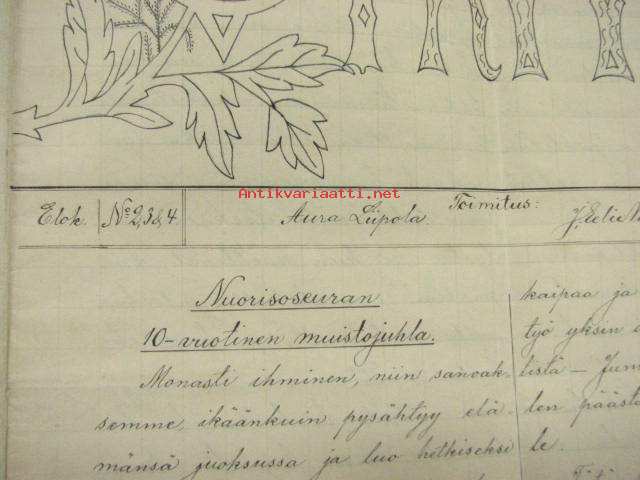 Antikvariaatti.net
Elok. No 2,3&4 Aura Liipola. Toimitus:
Nuorisoseuran
10-vuotinen muistojuhla.
Monasti ihminen, niin sanoak-
semme, ikäänkuin pysähtyy elä-
mänsä juoksussa ja luo hetkiseksi
kaipaa ja
työ yksin
listä –
len päästö
le.